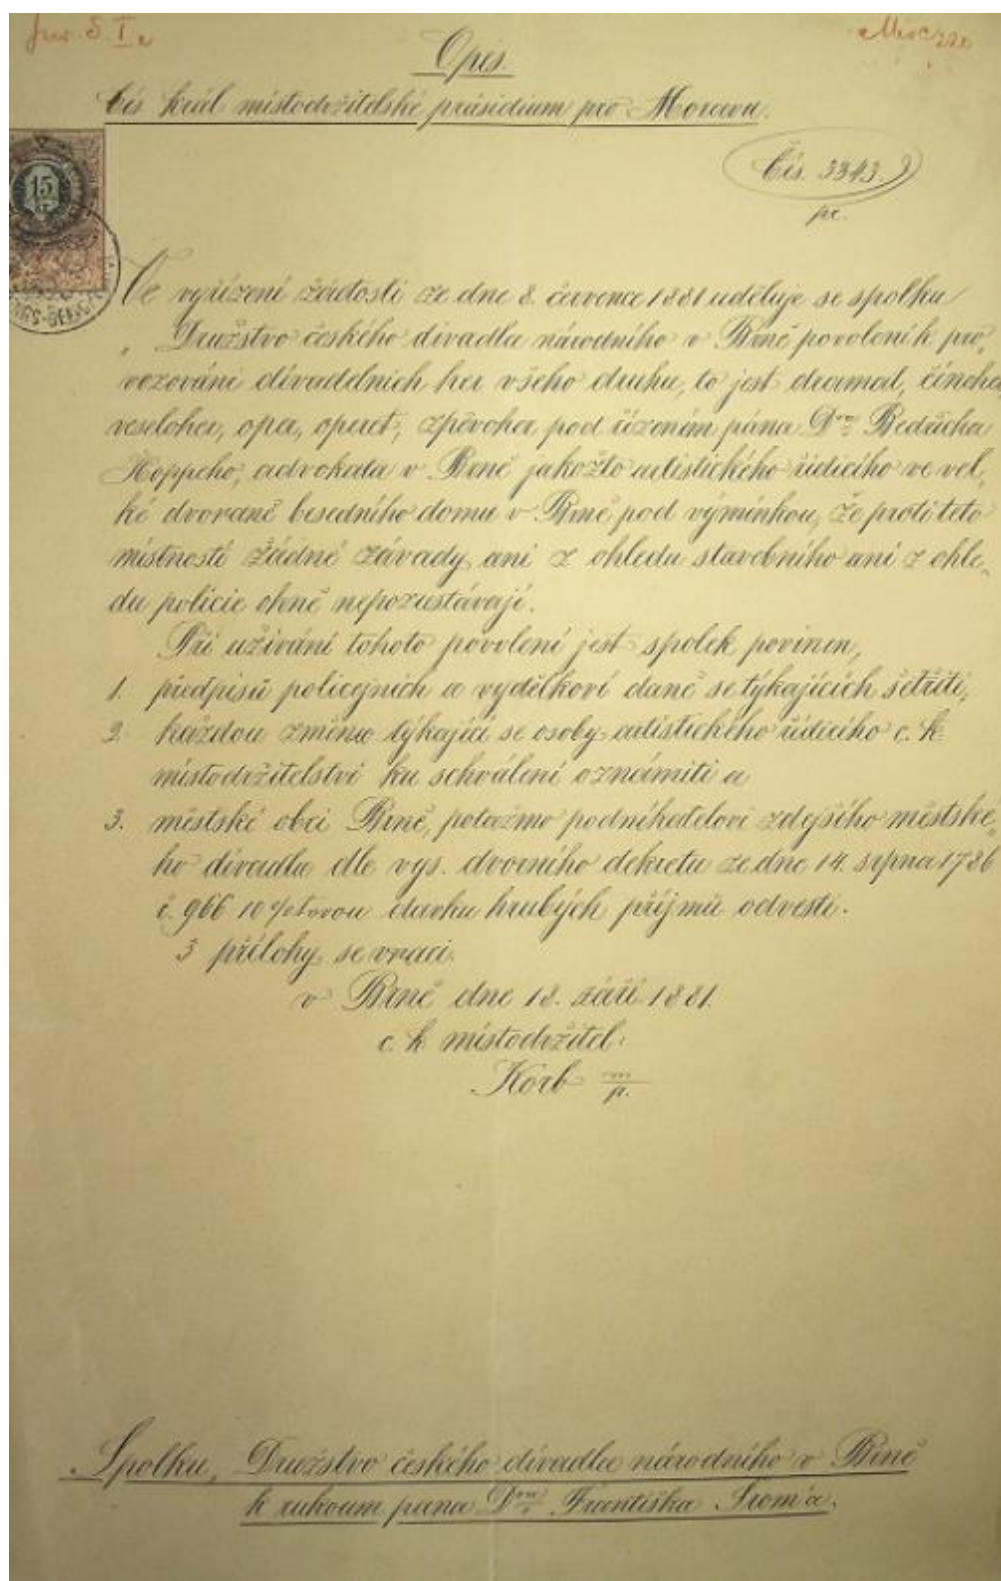 Opis.
Cís král místodržitelské präsidium pro Moravu.
Čís. 3343.
pr.
15
NGS-GEBÜ
Ve vyřízení žádosti ze dne 8. července 1881 uděluje se spolku
„Družstvo českého divadla národního v Brně povolení k pro„
vozování divadelních her všeho druhu, to jest dramat, činoher
veseloher, oper, operet, zpěvoher pod řízením pána Dra Bedřicha
Hoppeho, advokata v Brně jakožto artistického řídícího ve vel„
ké dvoraně besedního domu v Brně pod výmínkou, že proti této
místnosti žádné závady ani z ohledu stavebního ani z ohle„
du policie ohně nepozustávají.
Při užívání tohoto povolení jest spolek povinen,
1. předpisů policejních a vydělkové daně se týkajících šetřiti,
2. každou změnu týkající se osoby artistického řídícího c. k.
místodržitelství ku schválení oznámiti a
3. městské obci Brně, potažmo podnikatelovi zdejšího městské„
ho divadla dle vys. dvorního dekretu ze dne 14. srpna 1786
č. 966 10%tovou davku hrubých příjmů odvésti.
3 přílohy se vrací.
v Brně dne 18. září 1881.
c. k. místodržitel:
Korb m/p.
Spolku, Družstvo českého divadla národního v Brně
k rukoum pana Dra Františka Srom'a.